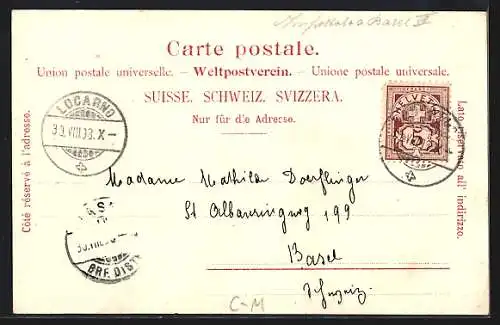 Basel II
Carte postale.
Union postale universelle. – Weltpostverein. – Unione postale universale.
SUISSE. SCHWEIZ. SVIZZERA.
Nur für die Adresse.
Côté réservé à l'adresse.
Lato riservato all' indirizzo.
LOCARNO
30.VIII.03.X–
HELVETIA
Madame Mathilde Doerflinger
St Albanring 199
Basel
Schweiz
BRF. DIST
C-M